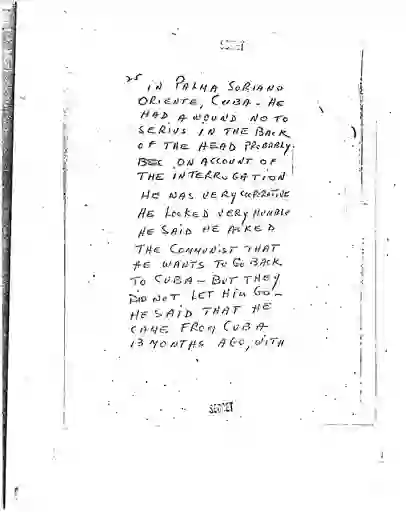 SECRET
25
IN PALMA SORIANO
ORIENTE, CUBA - HE
HAD A WOUND NO TO
SERIUS IN THE BACK
OF THE HEAD PROBABLY
BEC ON ACCOUNT OF
THE INTERRUGATION
HE WAS VERY COOPERATIVE
HE LOOKED VERY HUMBLE
HE SAID HE ASKED
THE COMMUNIST THAT
HE WANTS TO GO BACK
TO CUBA - BUT THEY
DID NOT LET HIM GO -
HE SAID THAT HE
CAME FROM CUBA
13 MONTHS AGO, WITH
SECRET